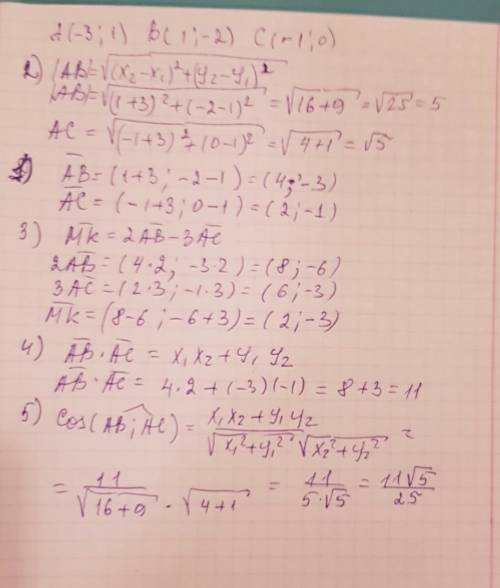 A(-3; 1) B(1; -2) C(-1; 0)
2) |AB|=√((x₂-x₁)²+(y₂-y₁)²)
|AB|=√((1+3)²+(-2-1)²)=√(16+9)=√25=5
AC=√((-1+3)²+(0-1)²)=√(4+1)=√5
1) A̅B̅=(1+3; -2-1)=(4; -3)
A̅C̅=(-1+3; 0-1)=(2; -1)
3) M̅K̅=2A̅B̅-3A̅C̅
2A̅B̅=(4·2; -3·2)=(8; -6)
3A̅C̅=(2·3; -1·3)=(6; -3)
M̅K̅=(8-6; -6+3)=(2; -3)
4) A̅B̅·A̅C̅=x₁x₂+y₁y₂
A̅B̅·A̅C̅=4·2+(-3)(-1)=8+3=11
5) Cos(AB; AC)=(x₁x₂+y₁y₂)/(√(x₁²+y₁²)√(x₂²+y₂²))=
=11/(√(16+9)·√(4+1))=11/(5·√5)=11√5/25